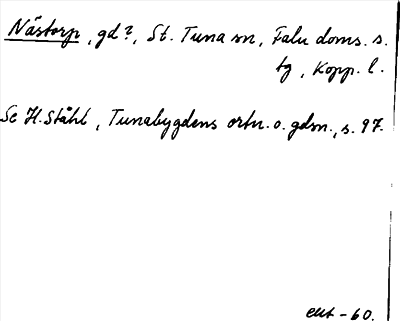 Nästorp, gd?, St. Tuna sn, Falu doms. s.
tg, Kopp. l.
Se H. Ståhl, Tunabygdens ortn. o. gdsn., s. 97.
-60.